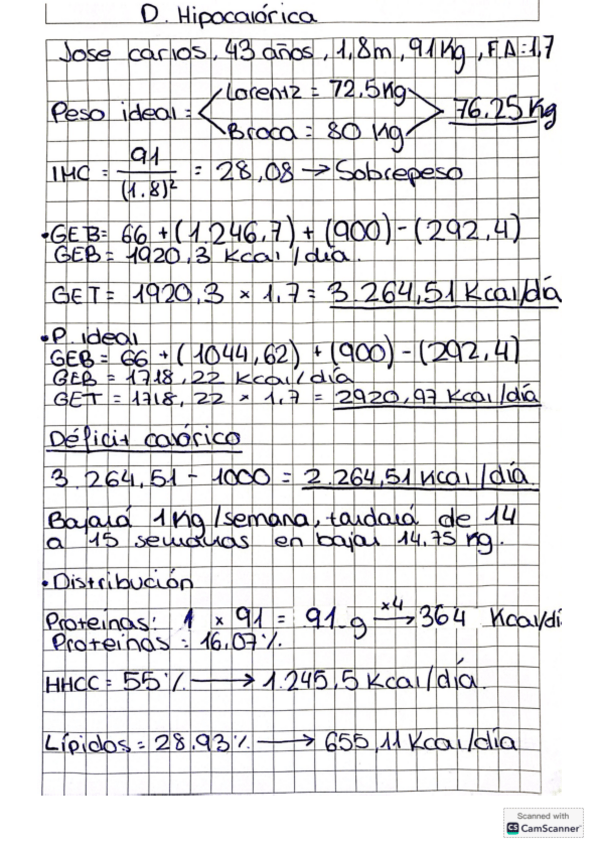 D. Hipocalórica
Jose carlos, 43 años, 1,8m, 91Kg, F.A:1,7
Lorentz = 72,5Kg
Peso ideal = 76.25 Kg
Broca = 80 Kg
IMC = 91 / (1.8)² = 28,08 → Sobrepeso
• GEB= 66 + (1.246,7) + (900) - (292,4)
GEB= 1920,3 Kcal/día.
GET = 1920,3 × 1,7 = 3.264,51 Kcal/día
• P. ideal
GEB= 66 + (1044,62) + (900) - (292,4)
GEB = 1718,22 Kcal/día
GET = 1718,22 × 1,7 = 2920,97 Kcal/día
Déficit calórico
3.264,51 - 1000 = 2.264,51 Kcal/día.
Bajará 1 Kg/semana, tardará de 14
a 15 semanas en bajar 14,75 Kg.
• Distribución
Proteínas: 1 × 91 = 91 g ×4→ 364 Kcal/dí
Proteínas = 16.07%.
HHCC = 55% → 1.245,5 Kcal/día.
Lípidos = 28.93% → 655,11 Kcal/día
Scanned with
CS CamScanner